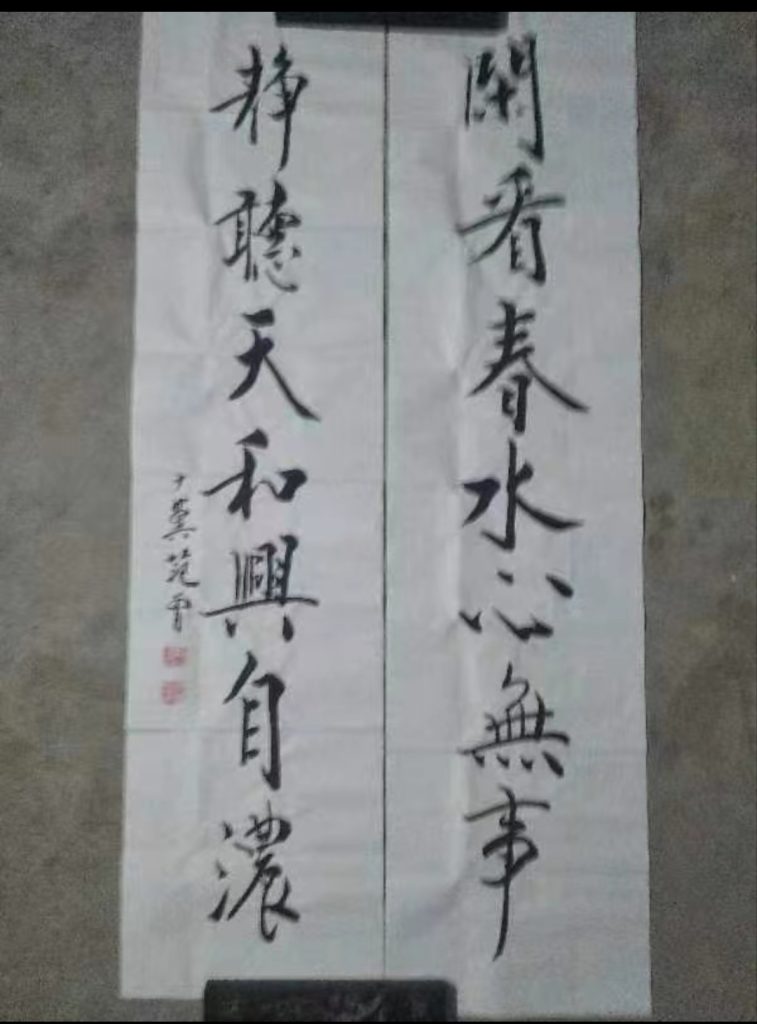 閑看春水心無事
静聽天和興自濃
十翼范曾